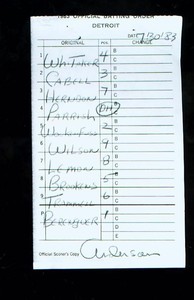 1983 OFFICIAL BATTING ORDER
DETROIT
DATE 7/30/83
ORIGINAL POS. CHANGE
1 WHITAKER 4 B
C
2 CABELL 3 B
C
3 HERNDON 7 B
C
4 PARRISH DH B
C
5 2 B
C
6 WILSON 9 B
C
7 LEMON 8 B
C
8 BROOKENS 5 B
C
9 TRAMMELL 6 B
C
P BERENGUER 1 B
C
D
E
Official Scorer's Copy Anderson